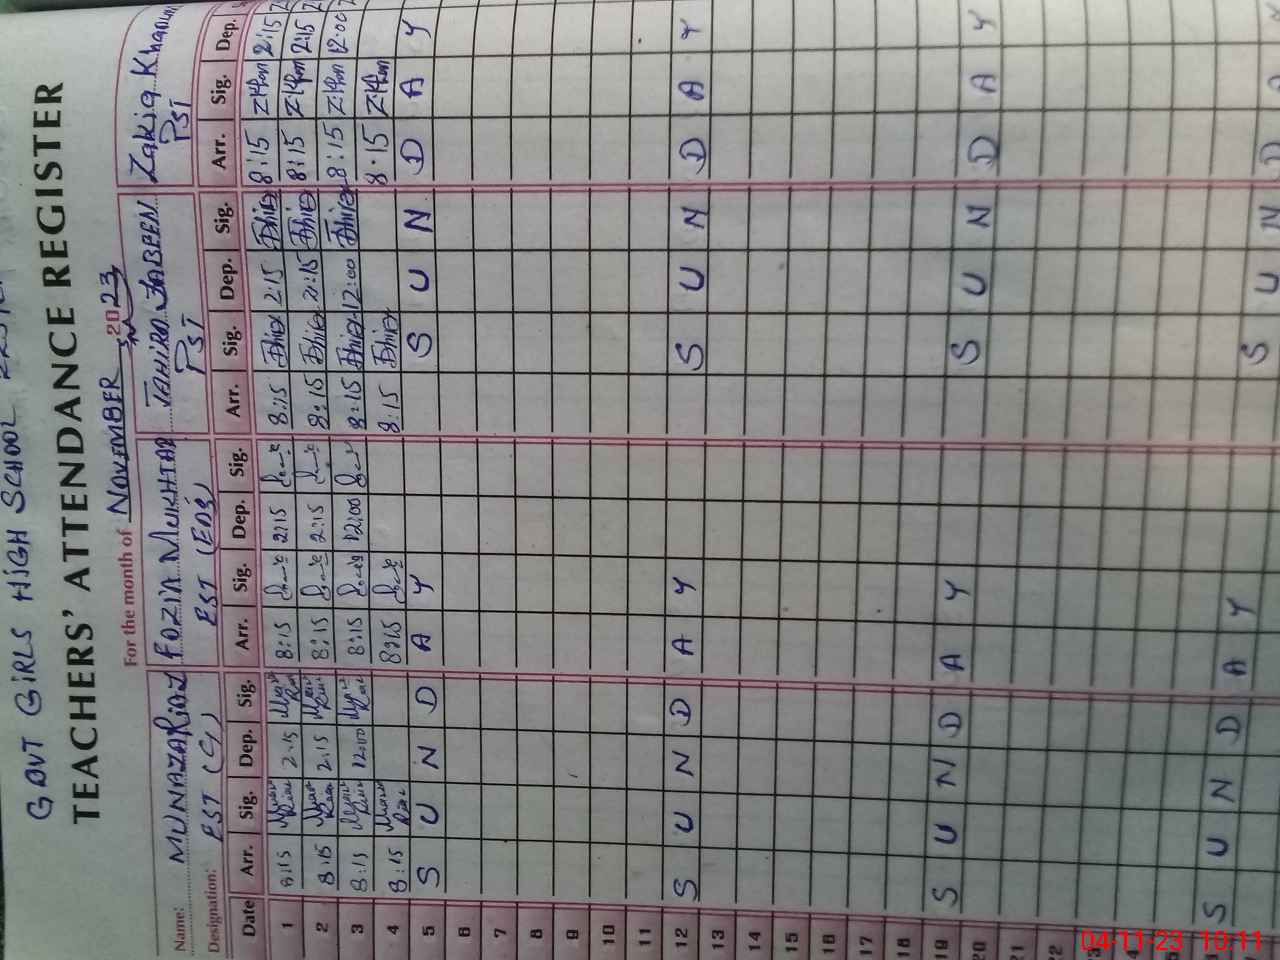 GOVT GIRLS HIGH SCHOOL
TEACHERS' ATTENDANCE REGISTER
For the month of NOVEMBER 2023
Name: MUNAZA RIAZ FOZIA MUKHTAR TAHIRA JABEEN Zakia Khanum
Designation: EST (G) EST (Eng) PST PST
Date Arr. Sig. Dep. Sig. Arr. Sig. Dep. Sig. Arr. Sig. Dep. Sig. Arr. Sig. Dep.
1 8:15 2:15 8:15 2:15 8:15 2:15 8:15 2:15
2 8:15 2:15 8:15 2:15 8:15 2:15 8:15 2:15
3 8:15 12:00 8:15 12:00 8:15 12:00 8:15 12:00
4 8:15 8:15 8:15 8:15
5 S U N D A Y S U N D A Y
6
7
8
9
10
11
12 S U N D A Y S U N D A Y
13
14
15
16
17
18
19 S U N D A Y S U N D A Y
20
21
22
S U N D A Y S U N D
04-11-23 10:11